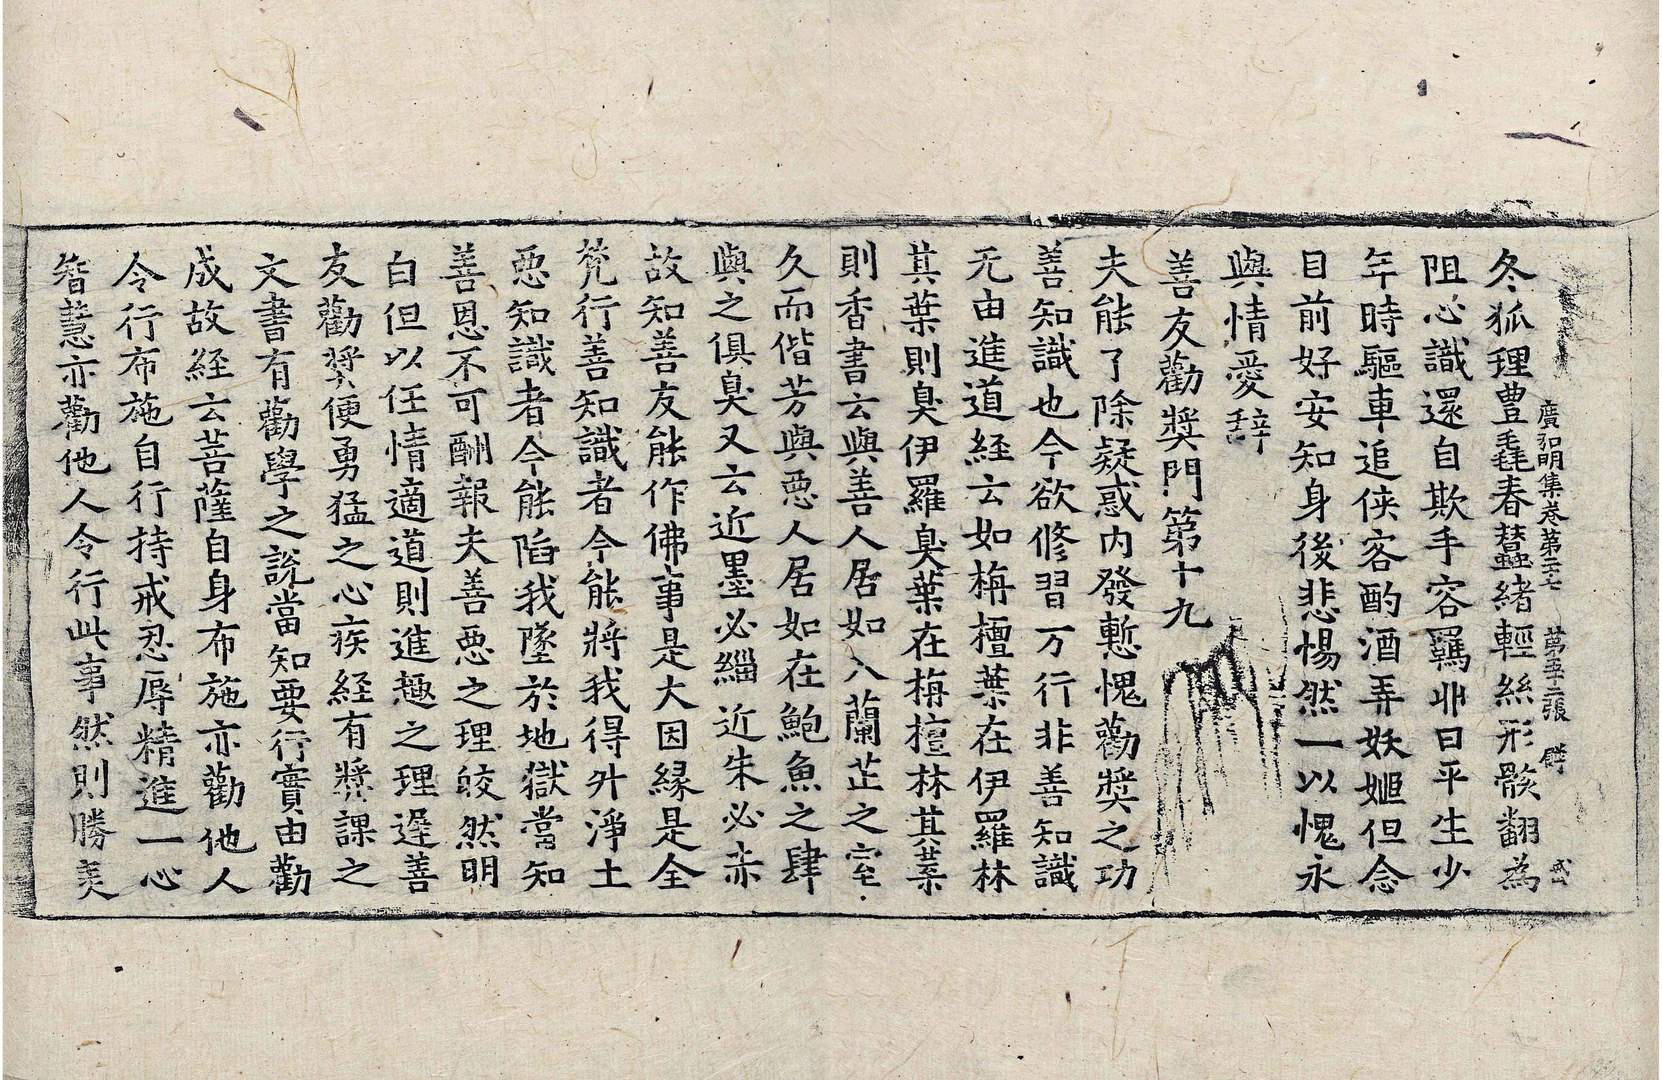 廣弘明集卷第二十七 第五十二張
冬狐理豊毳春蠶緒輕絲形骸翻為
阻心識還自欺手容羈丱日平生少
年時驅車追俠客酌酒弄妖嫗但念
目前好安知身後悲惕然一以愧永
與情愛辝
善友勸奬門第十九
夫能了除疑惑內發慙愧勸奬之功
善知識也今欲修習万行非善知識
无由進道経云如栴檀葉在伊羅林
其葉則臭伊羅臭葉在栴檀林其葉
則香書云與善人居如入蘭芷之室
久而偕芳與惡人居如在鮑魚之肆
與之俱臭又云近墨必緇近朱必赤
故知善友能作佛事是大因縁是全
梵行善知識者今能將我得升淨土
惡知識者今能陷我墜於地獄當知
善恩不可酬報夫善惡之理皎然明
白但以任情適道則進趣之理遅善
友勸奬便勇猛之心疾経有奬課之
文書有勸學之說當知要行實由勸
成故経云菩薩自身布施亦勸他人
令行布施自行持戒忍辱精進一心
智慧亦勸他人令行此事然則勝美